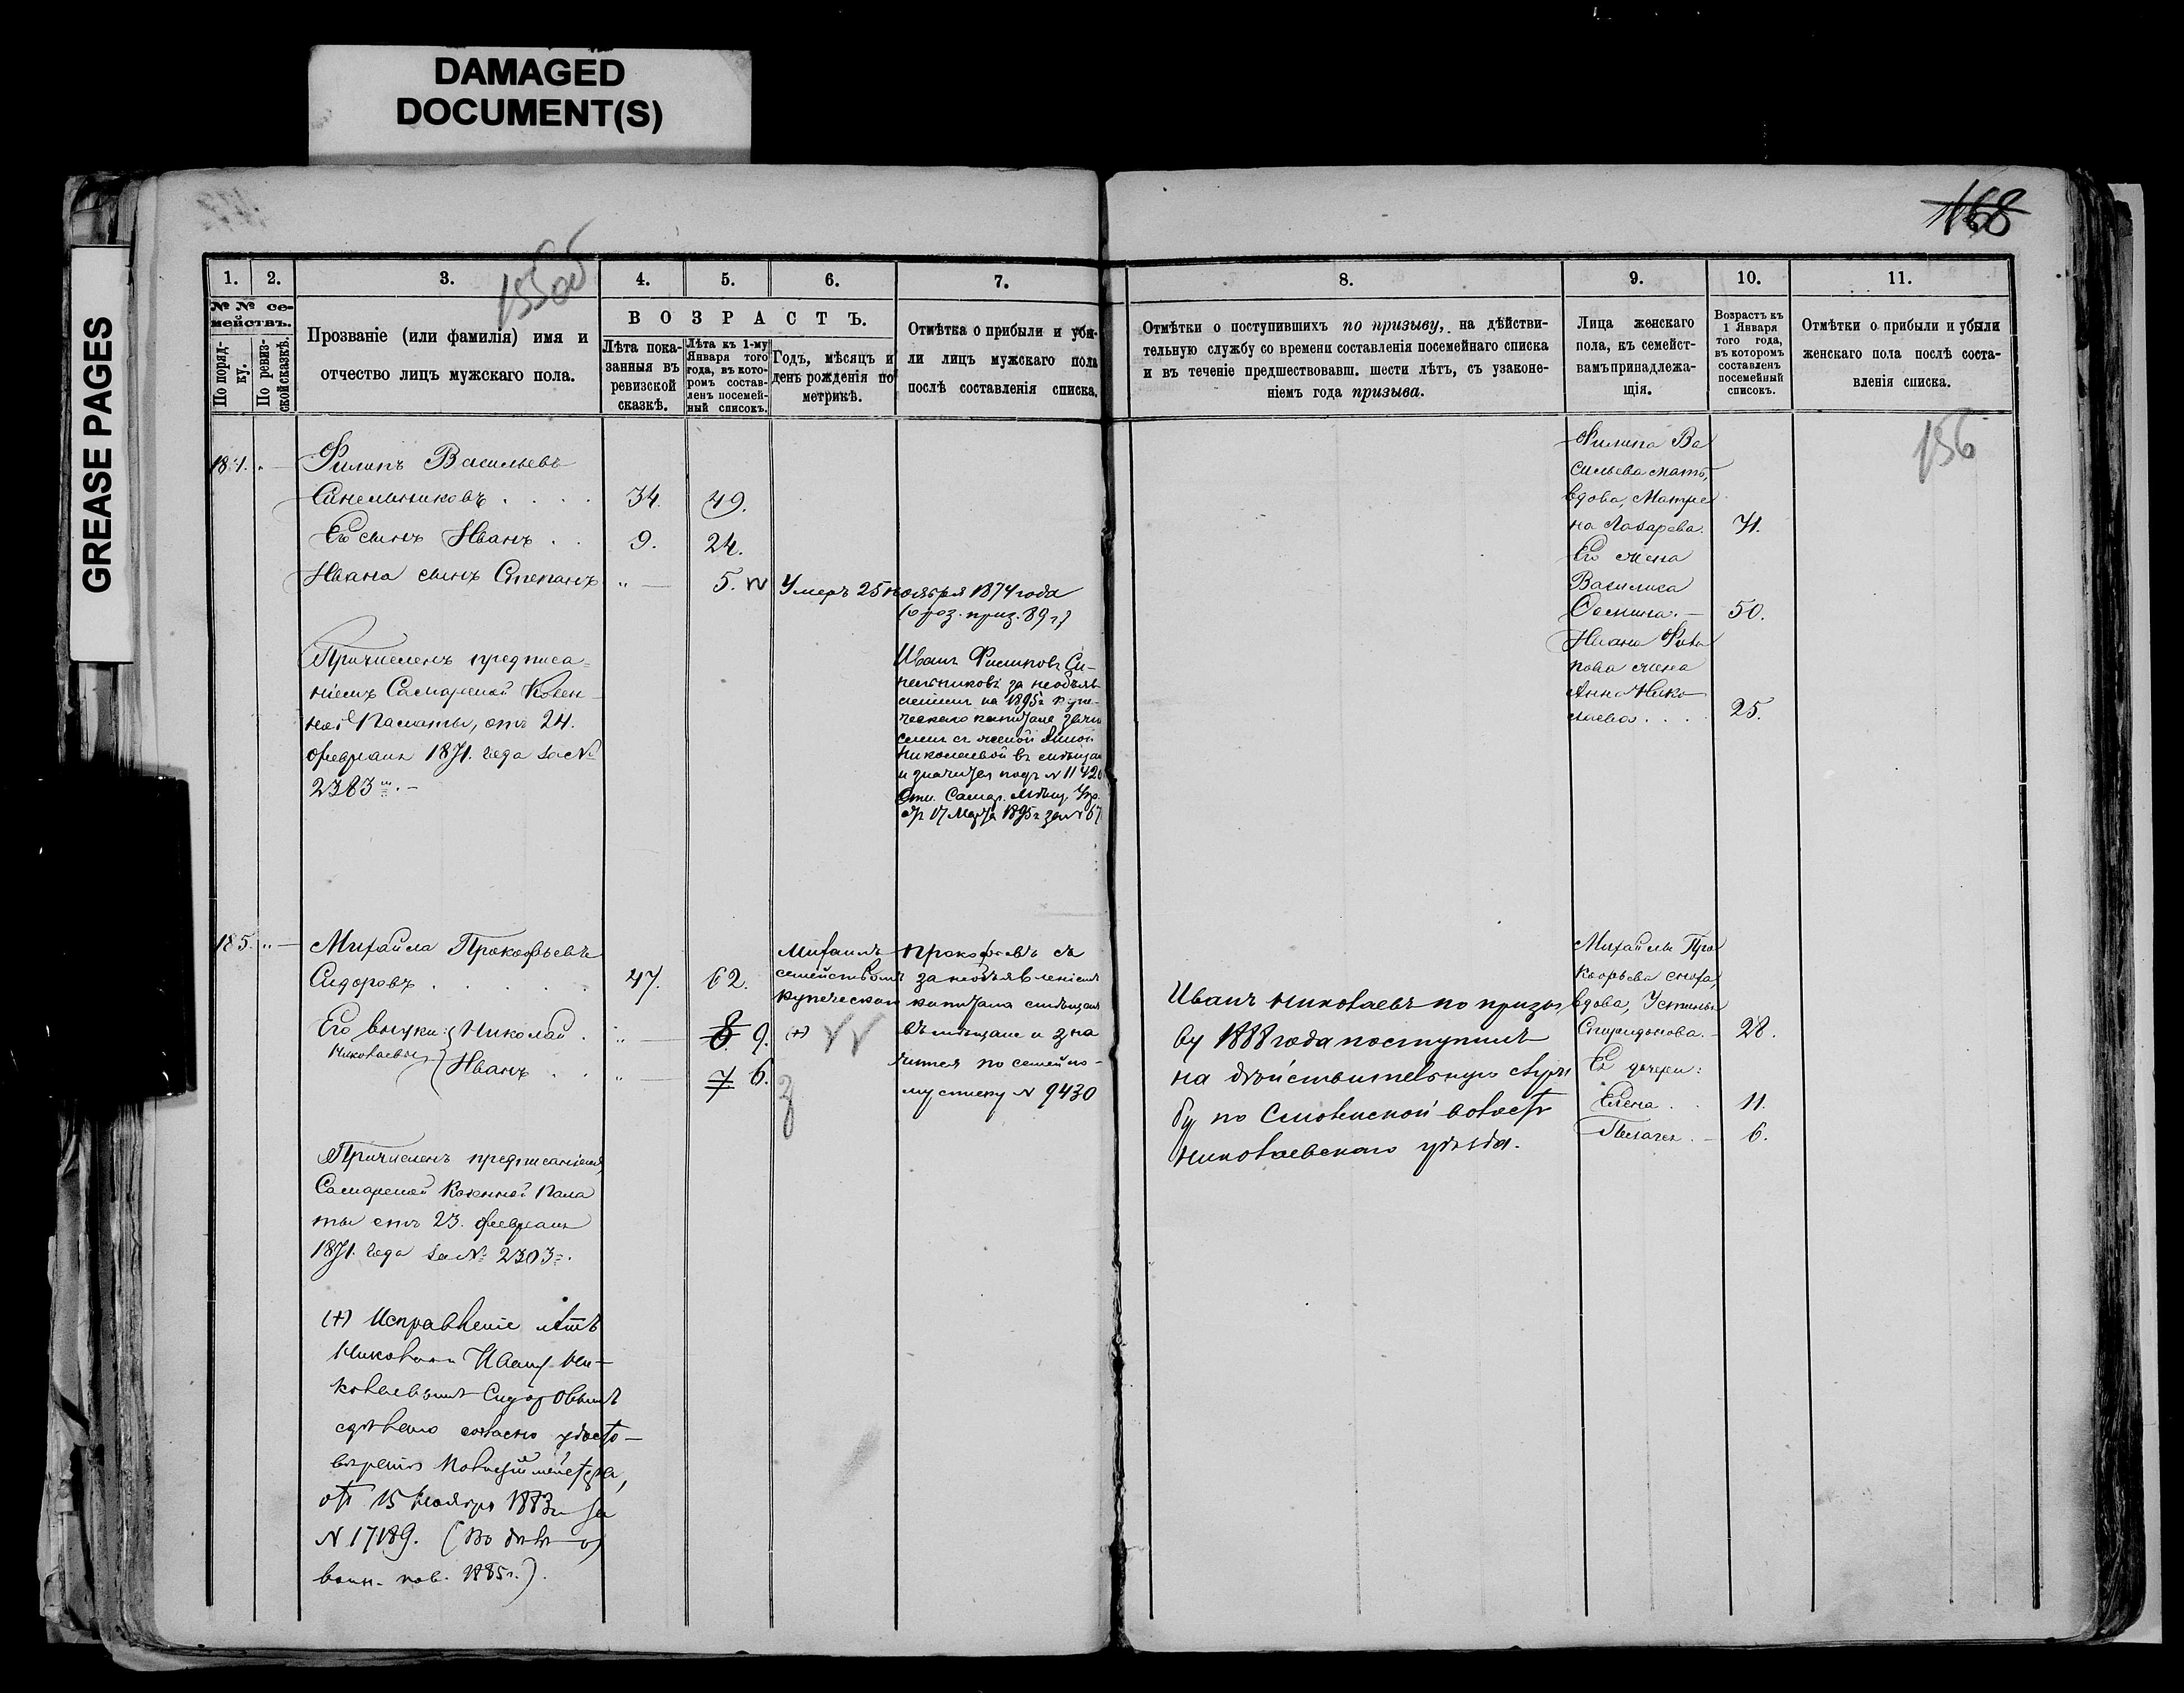 DAMAGED
DOCUMENT(S)
GREASE PAGES
168
155об
1. 2. 3. 4. 5. 6. 7.
№ № се-
мействъ.
По поряд-
ку.
По ревиз-
ской сказкѣ.
Прозваніе (или фамилія) имя и
отчество лицъ мужскаго пола.
ВОЗРАСТЪ.
Лѣта пока-
занныя въ
ревизской
сказкѣ.
Лѣта къ 1-му
Января того
года, въ кото-
ромъ состав-
ленъ посемей-
ный списокъ.
Годъ, мѣсяцъ и
день рожденія по
метрикѣ.
Отмѣтка о прибыли и убы-
ли лицъ мужскаго пола
послѣ составленія списка.
184.
Филипъ Васильевъ
Синельниковъ . . . . 34. 49.
Его сынъ Иванъ . . 9. 24.
Ивана сынъ Степанъ „ — 5.
Умеръ 25 ноября 1874 года
Причисленъ предписа=
ніемъ Самарской Казен-
ной Палаты, отъ 24.
февраля 1871. года за №
2383
Иванъ Филиповъ Си-
нельниковъ за необъяв-
леніемъ на 1895 г купе-
ческаго капитала
съ женой Анной
Николаевой въ мѣщан
и значится подъ № 11420
17 Марта 1895 г за № 67
185. „ —
Михайла Прокофьевъ
Сидоровъ . . . . . 47. 62.
Его внуки: Николай . „ — 8 9. (+)
Николаевы Иванъ . . „ — 7 6.
Михаилъ Прокофьевъ съ
семействомъ за необъявленіемъ
купеческаго капитала
въ мѣщане и зна
чится по семейно-
му списку № 9430
Причисленъ предписаніемъ
Самарской Казенной Пала
ты отъ 23. февраля
1871. года за № 2303=.
(+) Исправленіе лѣтъ
Николаю и Ивану Ни-
колаевымъ Сидоровымъ
сдѣлано согласно удосто-
вѣренія Полиціймейстера,
отъ 15 Ноября 1883 г за
№ 17189.
воин. пов. 1885 г.).
8. 9. 10. 11.
Отмѣтки о поступившихъ по призыву, на дѣйстви-
тельную службу со времени составленія посемейнаго списка
и въ теченіе предшествовавш. шести лѣтъ, съ узаконе-
ніемъ года призыва.
Лица женскаго
пола, къ семейст-
вамъ принадлежа-
щія.
Возрастъ къ
1 Января
того года,
въ которомъ
составленъ
посемейный
списокъ.
Отмѣтки о прибыли и убыли
женскаго пола послѣ соста-
вленія списка.
156
Филипа Ва
сильева мать,
вдова, Матре
на Лазарева. 71.
Его жена
Василиса
50.
Ивана Фили
пова жена
Анна Нико
лаева . . . . 25.
Иванъ Николаевъ по призы
ву 1888 года поступилъ
на дѣйствительную служ
бу по Смоленской волости
Николаевскаго уѣзда.
Михайлы Про
кофьева сноха,
вдова, Устинья
Спиридонова. — 28.
Ея дочери:
Елена . . 11.
Пелагея . — 6.